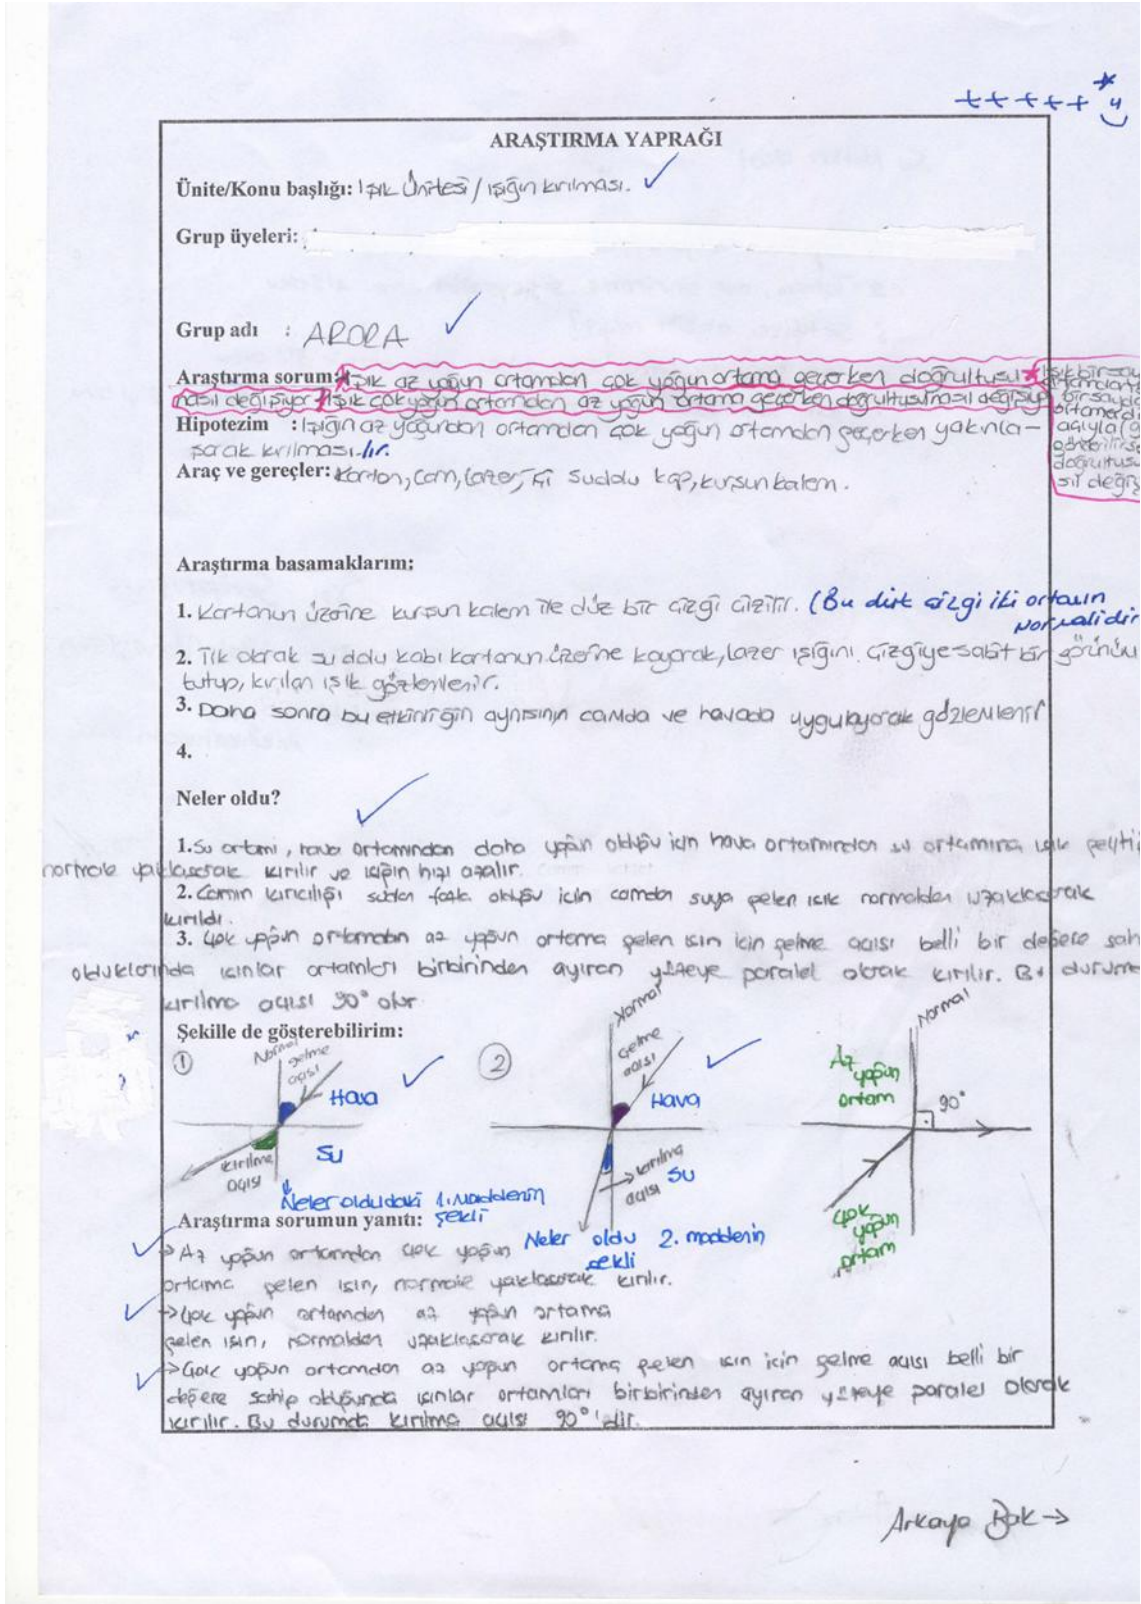 +++++ *
ARAŞTIRMA YAPRAĞI
Ünite/Konu başlığı: Işık Ünitesi / ışığın kırılması. ✓
Grup üyeleri:
Grup adı : ARORA ✓
Araştırma sorum: *Işık az yoğun ortamdan çok yoğun ortama geçerken doğrultusu
nasıl değişiyor *Işık çok yoğun ortamdan az yoğun ortama geçerken doğrultusu nasıl değişiyor
* Işık bir say
bir sayıda
açıyla
doğrultusu
sıl değiş
Hipotezim : Işığın az yoğundan ortamdan çok yoğun ortamdan geçerken yakınla-
şarak kırılması-lır.
Araç ve gereçler: Karton, cam, lazer, içi su dolu kap, kurşun kalem.
Araştırma basamaklarım:
1. Kartonun üzerine kurşun kalem ile düz bir çizgi çizilir. (Bu dik çizgi iki ortamın
Normalidir
2. İlk olarak su dolu kabı kartonun üzerine koyarak, lazer ışığını çizgiye sabit bir görünü
tutup, kırılan ışık gözlemlenir.
3. Daha sonra bu etkinliğin aynısının camda ve havada uygulayarak gözlemlenir
4.
Neler oldu? ✓
1. Su ortamı, hava ortamından daha yoğun olduğu için hava ortamından su ortamına ışık
normale yaklaşarak kırılır ve ışığın hızı azalır.
2. Camın kırıcılığı sudan fazla olduğu için camdan suya gelen ışık normalden uzaklaşarak
kırıldı.
3. Çok yoğun ortamdan az yoğun ortama gelen ışın için gelme açısı belli bir değere sah
olduklarında ışınlar ortamları birbirinden ayıran yüzeye paralel olarak kırılır. Bu durumda
kırılma açısı 90° olur
Şekille de gösterebilirim:
?
① Normal gelme açısı ✓
Hava
Su
kırılma açısı
Neler oldudaki 1. Maddenin
şekli
② Normal
gelme açısı ✓
Hava
kırılma açısı
Su
Neler oldu 2. maddenin
şekli
Normal
Az yoğun ortam
90°
Çok yoğun ortam
Araştırma sorumun yanıtı:
✓ → Az yoğun ortamdan çok yoğun
ortama gelen ışın, normale yaklaşarak kırılır.
✓ → Çok yoğun ortamdan az yoğun ortama
gelen ışın, normalden uzaklaşarak kırılır.
✓ → Çok yoğun ortamdan az yoğun ortama gelen ışın için gelme açısı belli bir
değere sahip olduğunda ışınlar ortamları birbirinden ayıran yüzeye paralel olarak
kırılır. Bu durumda kırılma açısı 90°'dir.
Arkaya Bak →